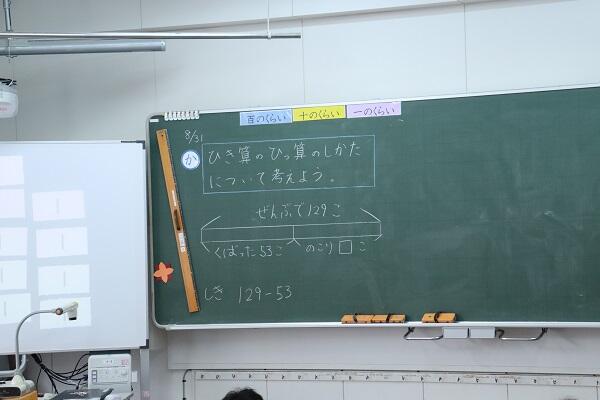 百のくらい 十のくらい 一のくらい
8/31
か
ひき算のひっ算のしかた
について考えよう。
ぜんぶで129こ
くばった53こ のこり□こ
しき 129-53